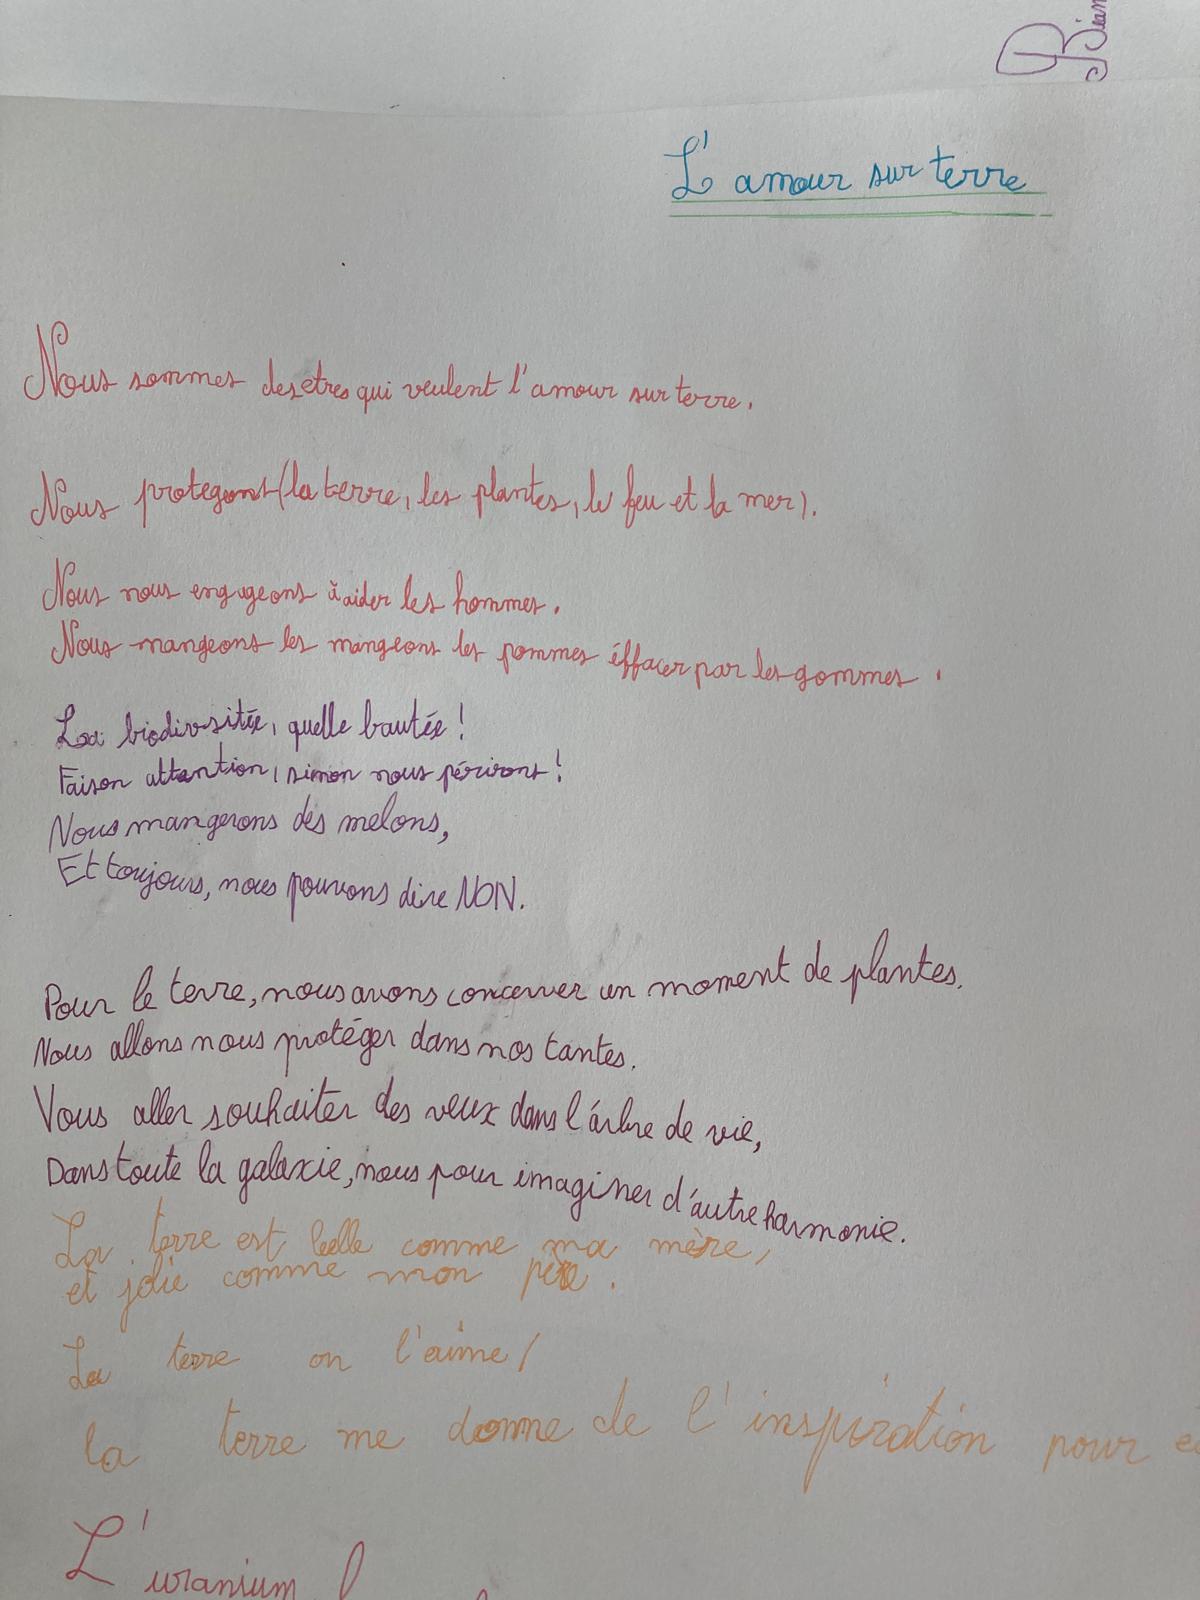 L'amour sur terre
Nous sommes des etres qui veulent l'amour sur terre.
Nous protegont (la terre, les plantes, le feu et la mer).
Nous nous engageons à aider les hommes.
Nous mangeons les mangeons les pommes éffacer par les gommes.
La biodivsitée, quelle bautée !
Faison attantion, sinon nous périrons !
Nous mangerons des melons,
Et toujours, nous pouvons dire NON.
Pour le terre, nous avons concerver un moment de plantes.
Nous allons nous protéger dans nos tantes.
Vous aller souhaiter des veux dans l'árbre de vie,
Dans toute la galaxie, nous pour imaginer d'autre harmonie.
La terre est belle comme ma mère,
et jolie comme mon père.
La terre on l'aime /
la terre me donne de l'inspiration pour
L'uranium